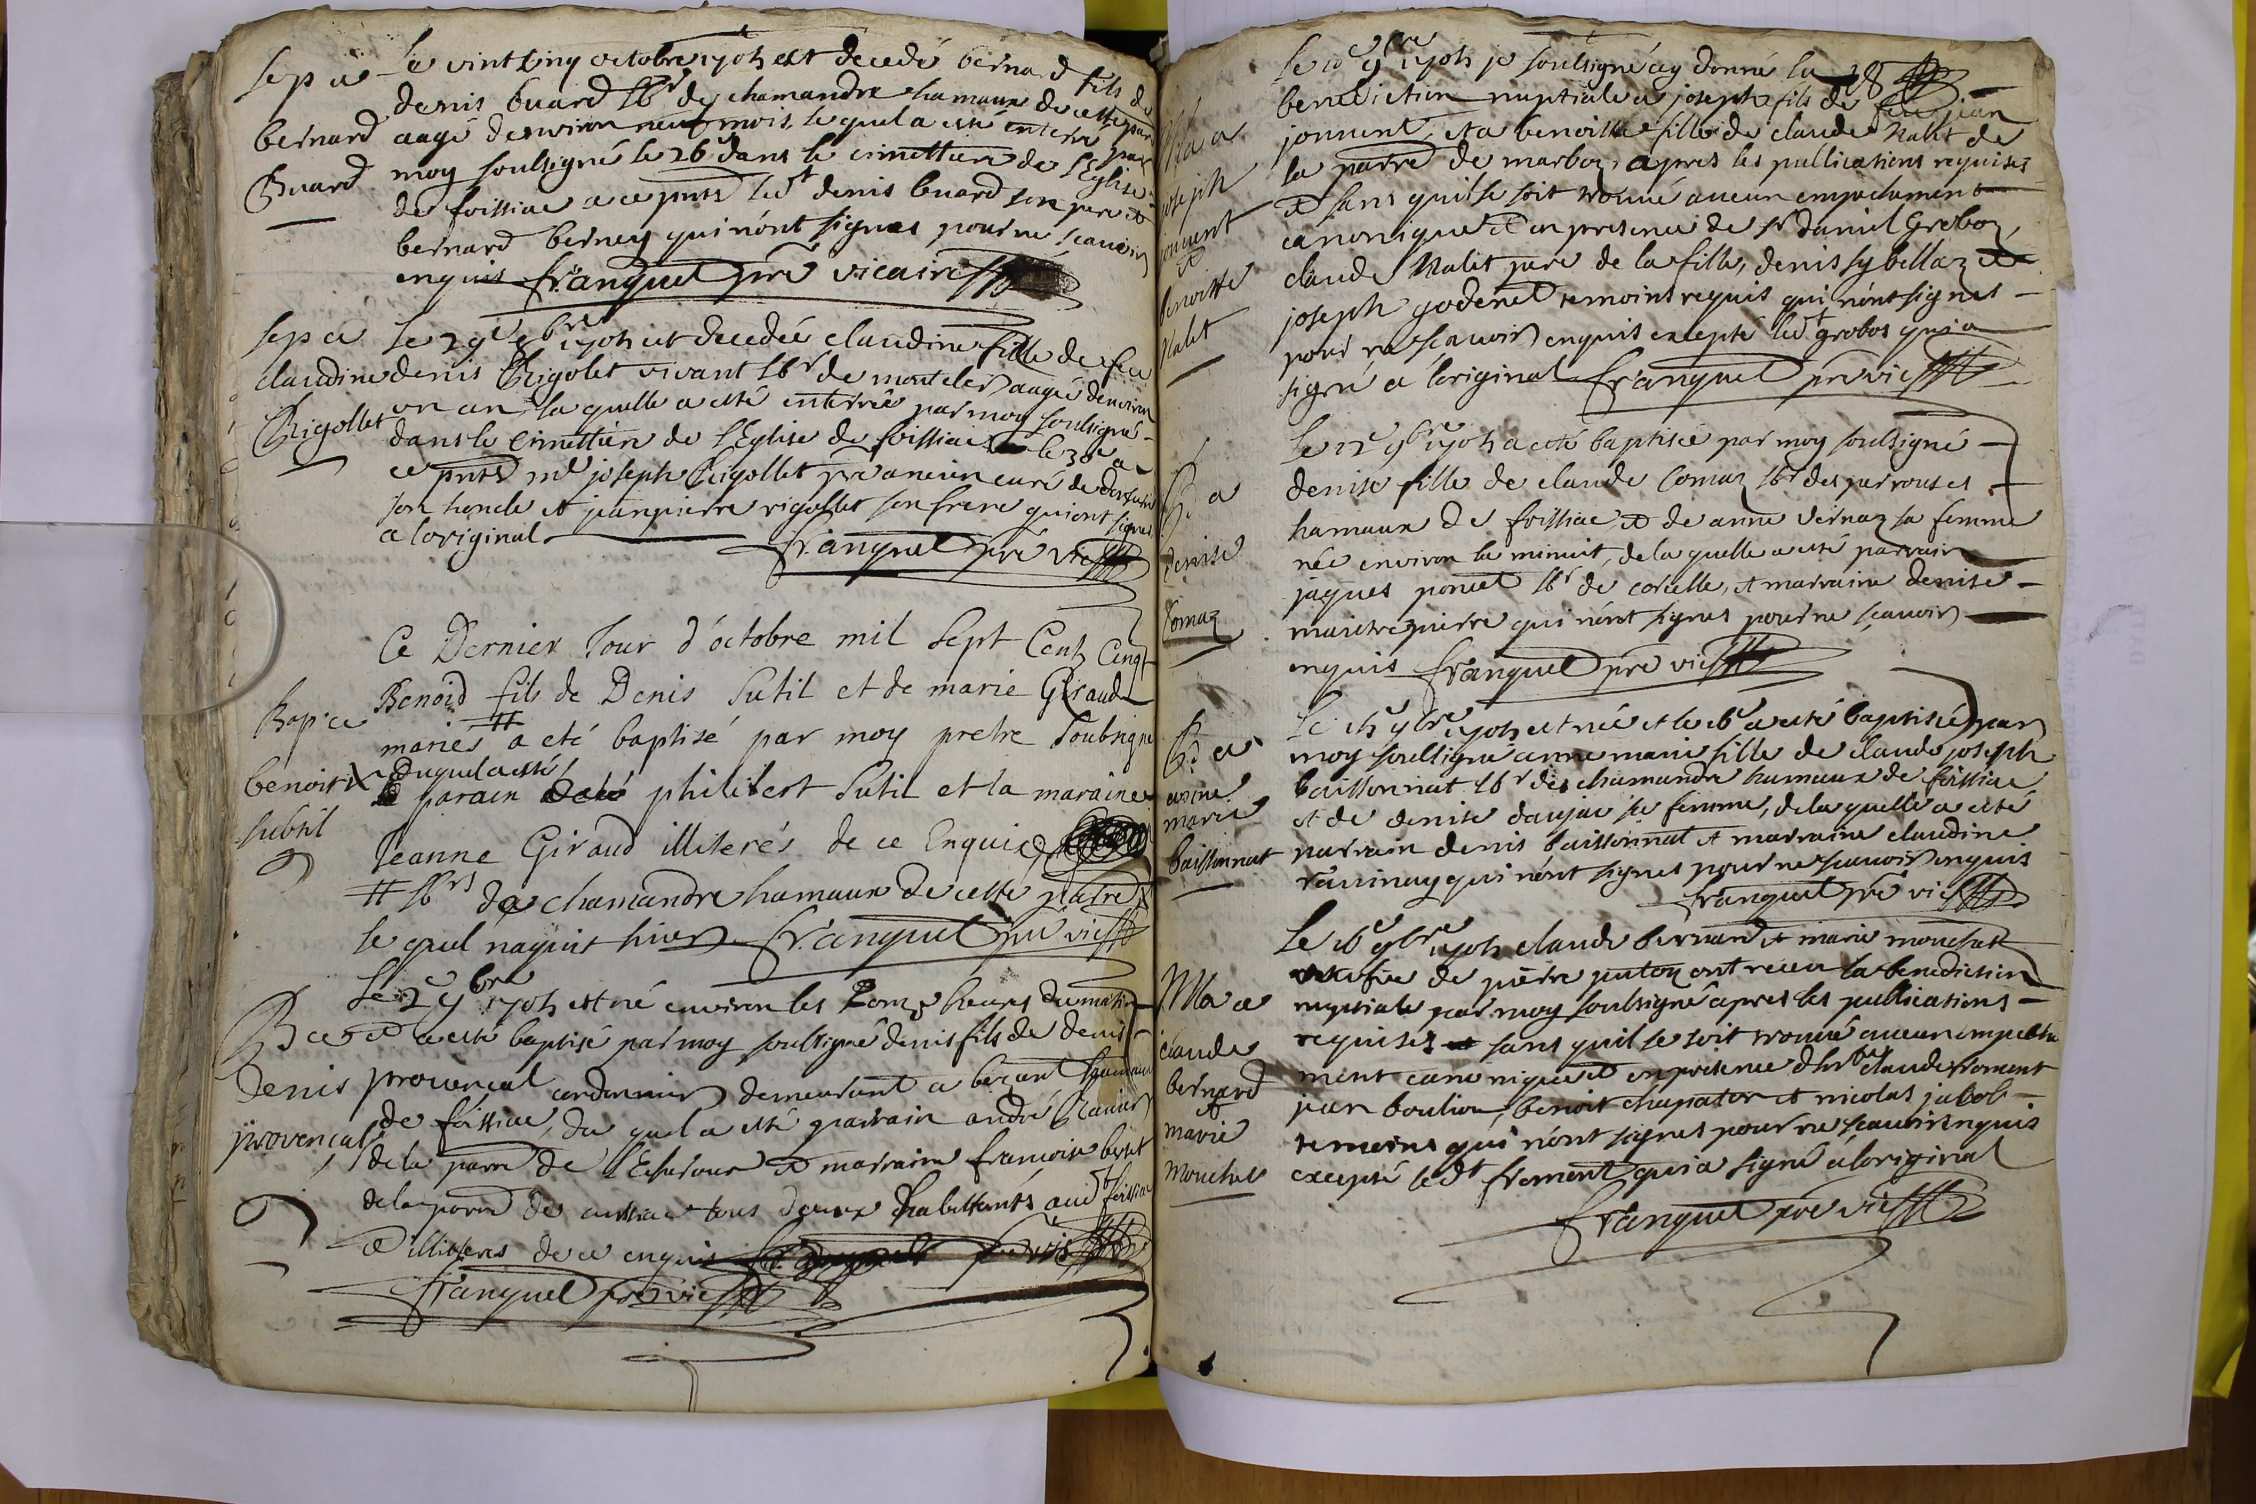 sep a
bernard
Buard
le vint cinq octobre 1705 est decedé bernard fils de
denis buard lbr de chamandre hamaux de cette parr
aagé denviron neuf mois, le quel a esté enterré par
moy soulsigné le 26e dans le cimettiere de l'Eglise
de foissiac a ce pnts led^t denis buard son pere et
bernard berney qui n'ont signes pour ne scavoir
enquis franquet ptre vicaire
sep a
claudine
Rigollet
le 29e 8bre 1705 est decedée claudine fille de feu
denis Rigolet vivant lbr de montcler aagée denviron
un an, la quelle a esté enterrée par moy soulsigné
dans le cimettiere de l'Eglise de foissiac le 30e a
ce pnts m^e joseph Rigollet ptre ancien curé de
son honcle et jeanpierre rigollet son frere qui ont signes
a loriginal franquet ptre vic
Bap^e a
benoist
subtil
Ce Dernier Jour d'octobre mil sept Centz Cinq
Benoid fils de Denis Sutil et de marie Giraud
mariés # a eté baptisé par moy pretre Soubsigné
duquel a esté
parain philibert Sutil et la maraine
Jeanne Giraud illiterés de ce Enquis
# lbrs de chamandre hamaux de cette parre
le quel naquit hier franquet ptre vic
B a
denis
provencal
Le 2e 9bre 1705 est né environ les onze heures du matin
et a esté baptisé par moy soulsigné denis fils de denis
provencal cordonnier demeurant a bezant hamaux
de foissiac, du quel a esté parrain andré
de la parre de l'Echaroux et marraine francoise
de la parre de cuisiac tous deux habittants aud^t foissiac
et illiteres de ce enquis
franquet ptre vic
28
Ma a
joseph
jonnent
et
benoiste
Nalet
Le 10e 9bre 1705 je soulsigné ay donné la
benediction nuptiale a joseph fils de feu jean
jonnent, et a benoiste fille de claude Nalet de
la parre de marboz, apres les publications requises
et sans quil se soit trouvé aucun empechement
canonique et en presence de sr daniel Groboz,
claude Nalet pere de la fille, denis sybellaz et
joseph godenet temoins requis qui n'ont signes
pour ne scavoir enquis excepté led^t grobos qui a
signé a loriginal franquet ptre vic
B. a
denise
Comaz
Le 12e 9bre 1705 a esté baptisée par moy soulsigné
denise fille de claude Comaz lbr des perrouses
hamaux de foissiac et de anne vernaz sa femme
née environ la minuit, de la quelle a esté parrain
jaques poncet lbr de corcelle, et marraine denise
maistrepierre qui n'ont signes pour ne scavoir
enquis franquet ptre vic
B. a
anne
marie
buissonnat
Le 15e 9bre 1705 est née et le 16e a esté baptisée par
moy soulsigné anne marie fille de claude joseph
buissonnat lbr de chamandre hamaux de foissiac
et de denise daujac sa femme, de la quelle a esté
parrain denis buissonnat et marraine claudine
ravinay qui n'ont signes pour ne scavoir enquis
franquet ptre vic
Ma a
claude
bernard
et
marie
Mouchet
Le 16e 9bre 1705 claude bernard et marie mouchet
vefve de pierre putoz ont receu la benediction
nuptiale par moy soulsigné apres les publications
requises et sans quil se soit trouvé aucun empeche
ment canonique et en presence d'hble claude froment
jean boulion, benoit chapator et nicolas jubob
temoins qui n'ont signes pour ne scavoir enquis
excepté led^t froment qui a signé a loriginal
franquet ptre vic